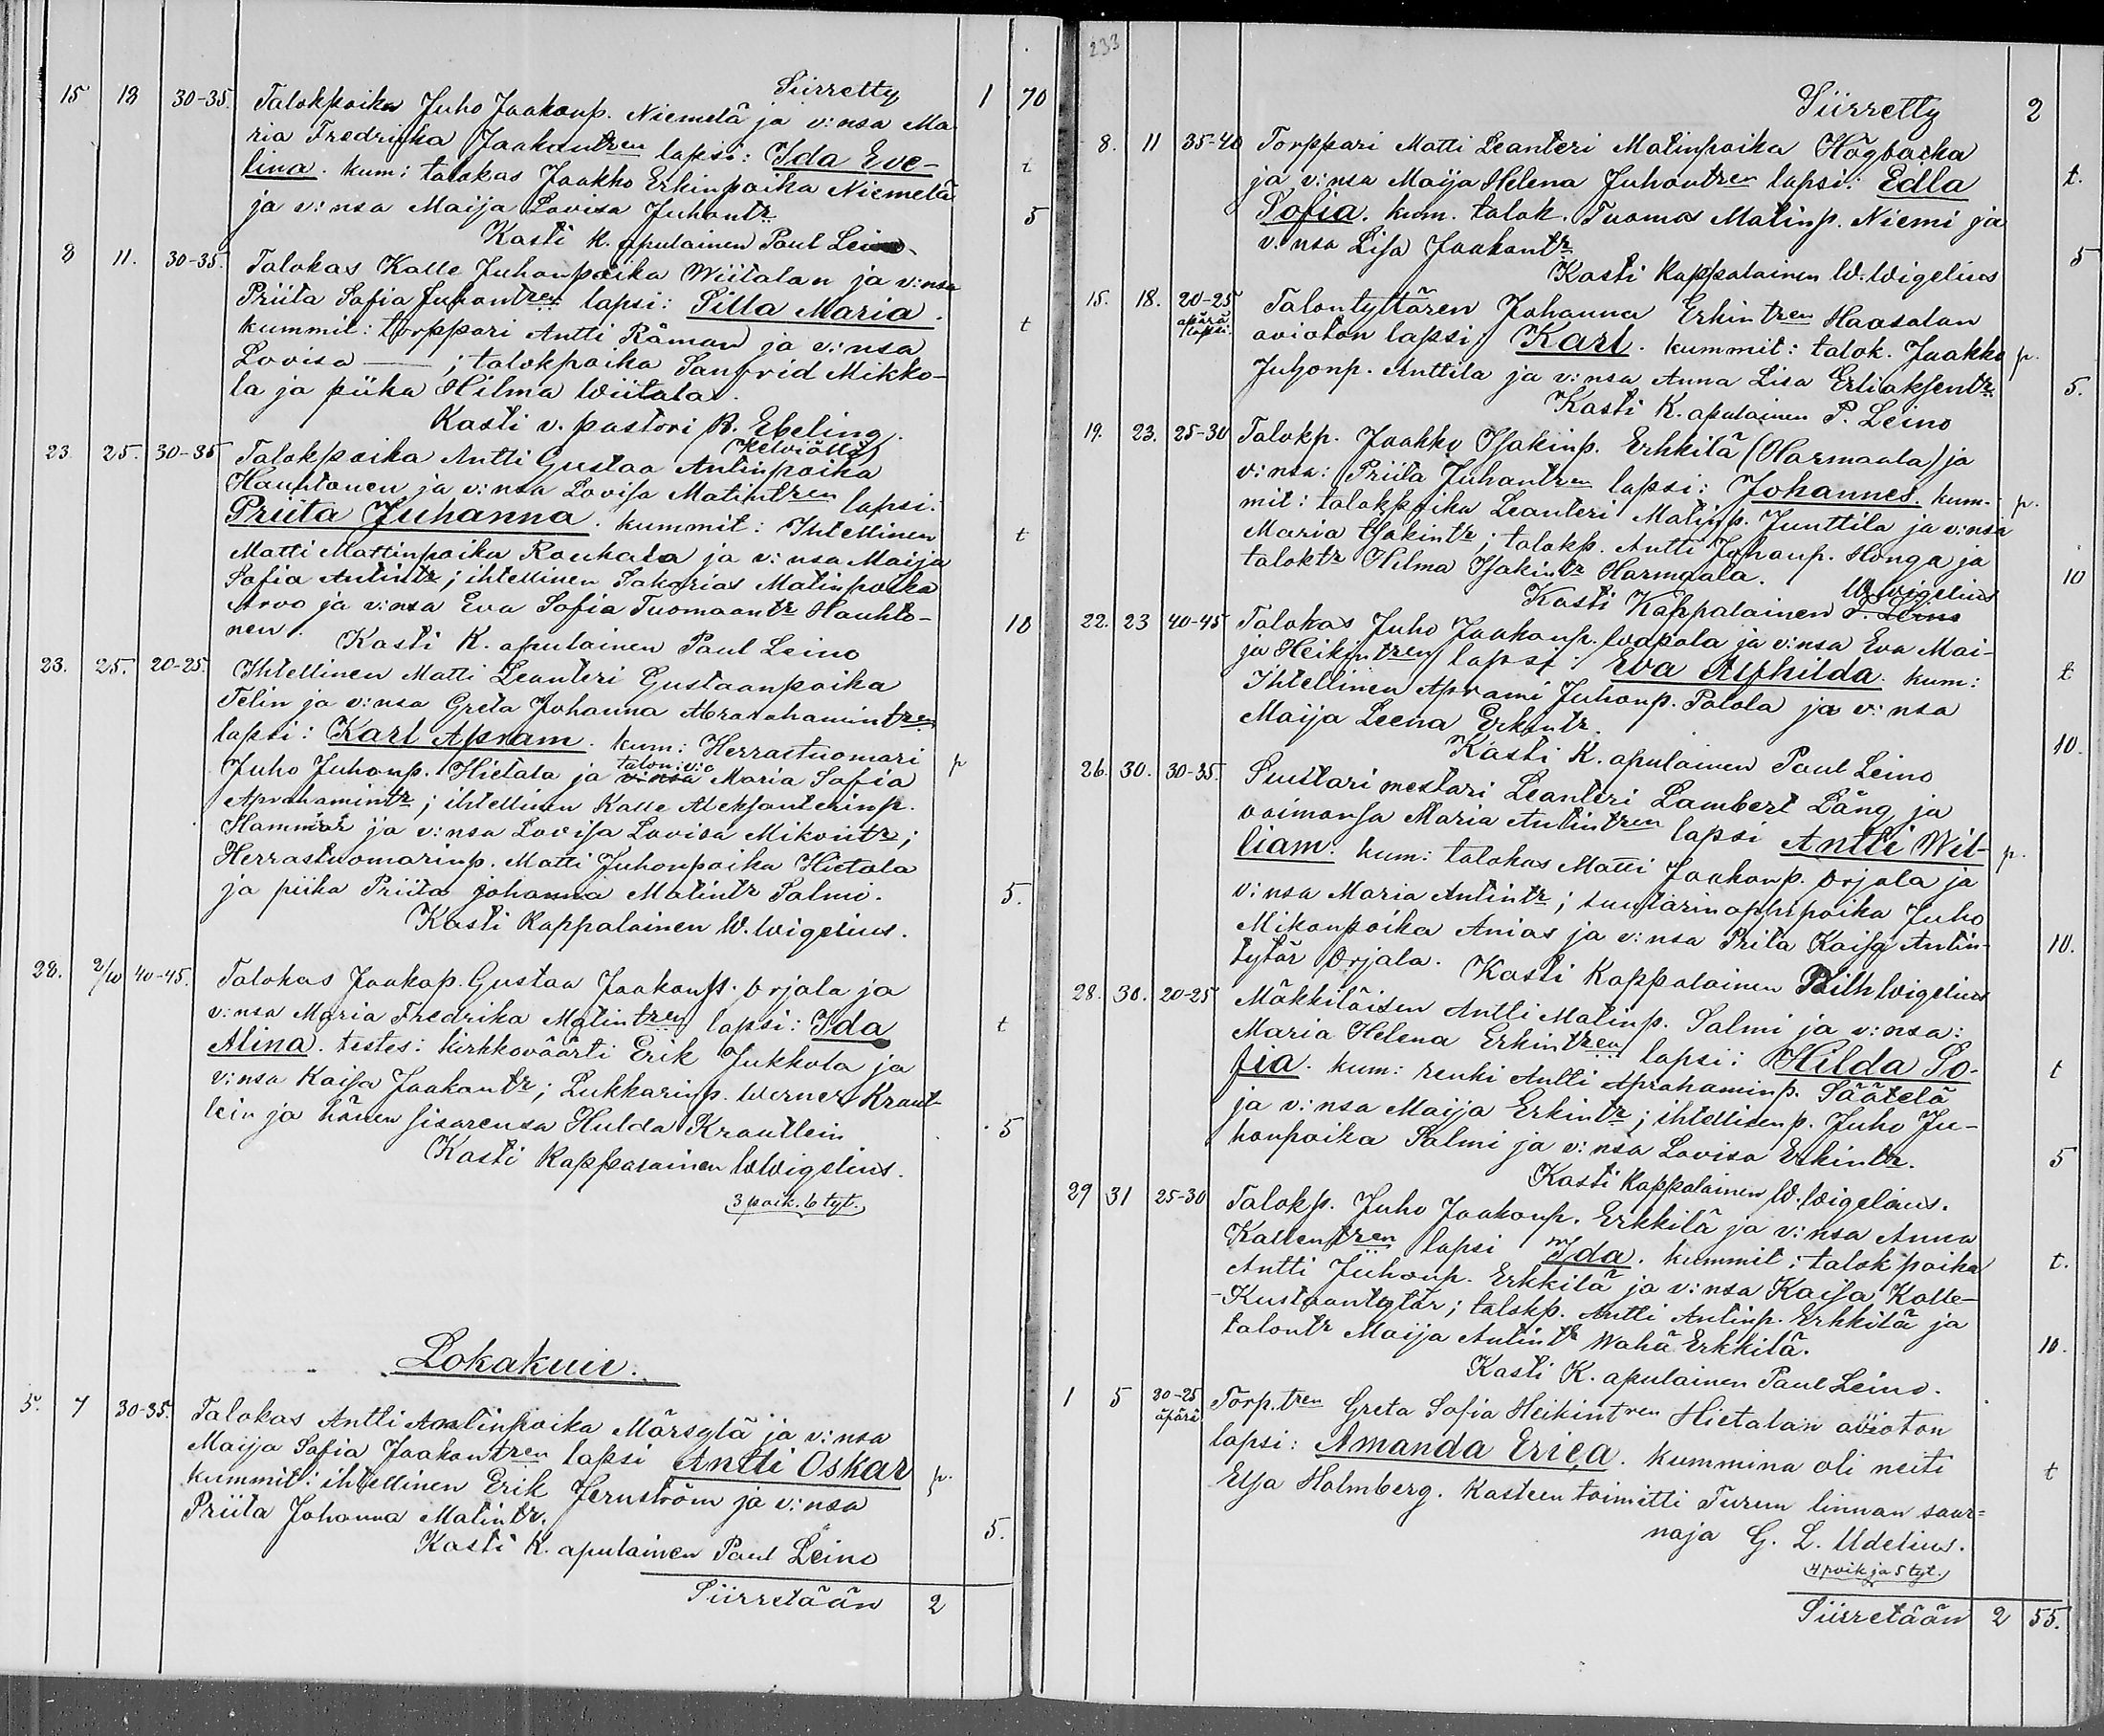 Siirretty 1 70
15 18 30-35. Talokpoika Juho Jaakonp. Niemelä ja v:nsa Ma
ria Fredriika Jaakontren lapsi: Ida Eve-
lina. kum: talokas Jaakko Erkinpoika Niemelä t
ja v:nsa Maija Lovisa Juhontr. 5
Kasti K. apulainen Paul Leino
8 11. 30-35. Talokas Kalle Juhonpoika Wiitalan ja v:nsa
Priita Sofia Juhontren lapsi: Silla Maria.
kummit: torppari Antti Råman ja v:nsa t
Lovisa — ; talokpoika Sanfrid Mikko-
la ja piika Hilma Wiitala.
Kasti v. pastori R. Ebeling.
Kelviällä
23. 25. 30-35 Talokpoika Antti Gustaa Antinpoika
Hauhtonen ja v:nsa Lovisa Matintren lapsi:
Priita Juhanna. kummit: Ihtellinen t
Matti Mattinpoika Rauhala ja v:nsa Maija
Sofia Antintr; ihtellinen Sakarias Matinpoika
Arvo ja v:nsa Eva Sofia Tuomaantr Hauhto-
nen. 10
Kasti K. apulainen Paul Leino
23. 25. 20-25. Ihtellinen Matti Leanteri Gustaanpoika
Telin ja v:nsa Greta Johanna Abrarahamintren
lapsi: Karl Apram. kum: Herrastuomari
talon:v:o
Juho Juhonp. Hietala ja v:nsa Maria Sofia p
Aprahamintr; ihtellinen Kalle Aleksanterinp.
Hammar ja v:nsa Lovisa Lovisa Mikontr;
Herrastuomarinp. Matti Juhonpoika Hietala
ja piika Priita Johanna Matintr Salmi. 5.
Kasti Kappalainen W. Wigelius.
28. 2/10 40-45. Talokas Jaakap. Gustaa Jaakonp. Orjala ja
v:nsa Maria Fredrika Matintren lapsi: Ida t
Alina. testes: kirkkoväärti Erik Jukkola ja
v:nsa Kaisa Jaakontr; Lukkarinp. Werner Kraut-
lein ja hänen sisarensa Hulda Krautlein 5
Kasti Kappalainen W Wigelius.
3 poik. 6 tyt.
Lokakuu.
5. 7 30-35. Talokas Antti Antinpoika Märsylä ja v:nsa
Maija Sofia Jaakontren lapsi Antti Oskar p.
kummit: ihtellinen Erik Jernström ja v:nsa
Priita Johanna Matintr. 5.
Kasti K. apulainen Paul Leino
Siirretään 2
233
Siirretty 2
8. 11 35-40 Torppari Matti Leanteri Matinpoika Högbacka
ja v:nsa Maija Helena Juhontren lapsi: Edla t.
Sofia. kum. talok. Tuomas Matinp. Niemi ja
v:nsa Lisa Jaakontr. 5
Kasti Kappalainen W. Wigelius
15. 18. 20-25 Talontyttären Johanna Erkintren Haasalan
äpärä
lapsi. avioton lapsi: Karl. kummit: talok. Jaakko p.
Juhonp. Anttila ja v:nsa Anna Lisa Eliaksentr. 5.
Kasti K. apulainen P. Leino
19. 23. 25-30 Talokp. Jaakko Isakinp. Erkkilä (Harmaala) ja
v:nsa: Priita Juhontren lapsi: Johannes. kum- p.
mit: talokpoika Leanteri Matinp. Junttila ja v:nsa
Maria Isakintr; talokp. Antti Juhonp. Honga ja
taloktr Hilma Isakintr Harmaala. 10
W Wigelius
Kasti Kappalainen P. Leino
22. 23 40-45 Talokas Juho Jaakonp. Luapala ja v:nsa Eva Mai-
ja Heikintren lapsi: Eva Alfhilda. kum: t
Ihtellinen Aprami Juhonp. Palola ja v:nsa
Maija Leena Erkintr. 10.
Kasti K. apulainen Paul Leino
26. 30. 30-35. Suutari mestari Leanteri Lambert Lång ja
vaimonsa Maria Antintren lapsi Antti Wil-
liam. kum: talokas Matti Jaakonp. Orjala ja p.
v:nsa Maria Antintr; suutarin oppipoika Juho
Mikonpoika Anias ja v:nsa Priita Kaisa Antin-
tytär Orjala. 10.
Kasti Kappalainen Wilh Wigelius
28. 30. 20-25 Mäkkiläisen Antti Matinp. Salmi ja v:nsa:
Maria Helena Erkintren lapsi: Hilda So-
fia. kum: renki Antti Aprahaminp. Säätelä t
ja v:nsa Maija Erkintr; ihtellisenp. Juho Ju-
honpoika Salmi ja v:nsa Lovisa Erkintr. 5
Kasti Kappalainen W. Wigelius.
29 31 25-30 Talokp. Juho Jaakonp. Erkkilä ja v:nsa Anna
Kallentren lapsi Ida. kummit: talokpoika t.
Antti Juhonp. Erkkilä ja v:nsa Kaisa Kalle-
-Kustaantytär; talokp. Antti Antinp. Erkkilä ja
talontr Maija Antintr Wähä Erkkilä. 10.
Kasti K. apulainen Paul Leino.
1 5 20-25 Torp.tren Greta Sofia Heikintren Hietalan avioton
äpärä lapsi: Amanda Erica. kummina oli neiti t
Elsa Holmberg. Kasteen toimitti Turun linnan saar=
naja G. L. Udelius.
4 poik ja 5 tyt.
Siirretään 2 55.